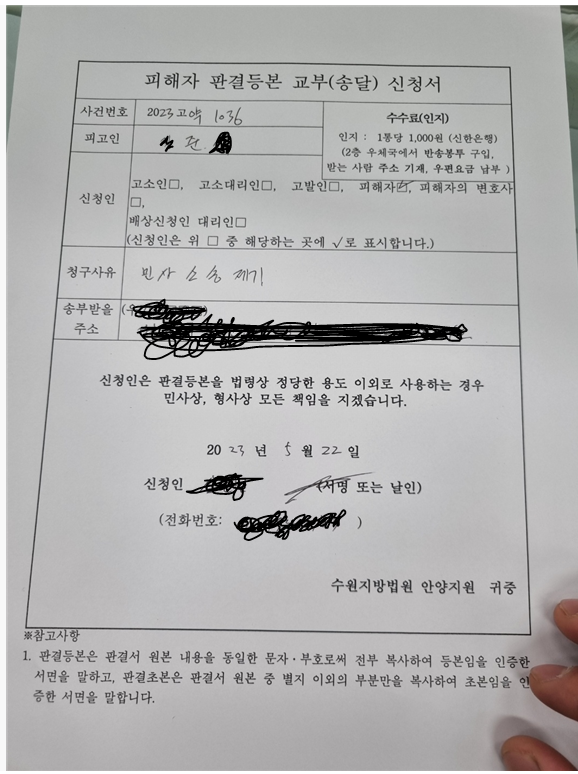 피해자 판결등본 교부(송달) 신청서
사건번호 2023고약 1036
수수료(인지)
인지 : 1통당 1,000원 (신한은행)
(2층 우체국에서 반송봉투 구입,
받는 사람 주소 기재, 우편요금 납부)
피고인
신청인
고소인□, 고소대리인□, 고발인□, 피해자☑, 피해자의 변호사
□,
배상신청인 대리인□
(신청인은 위 □ 중 해당하는 곳에 √로 표시합니다.)
청구사유 민사 소송 제기
송부받을
주소
신청인은 판결등본을 법령상 정당한 용도 이외로 사용하는 경우
민사상, 형사상 모든 책임을 지겠습니다.
2023 년 5 월 22 일
신청인 (서명 또는 날인)
(전화번호: )
수원지방법원 안양지원 귀중
※참고사항
1. 판결등본은 판결서 원본 내용을 동일한 문자·부호로써 전부 복사하여 등본임을 인증한
서면을 말하고, 판결초본은 판결서 원본 중 별지 이외의 부분만을 복사하여 초본임을 인
증한 서면을 말합니다.